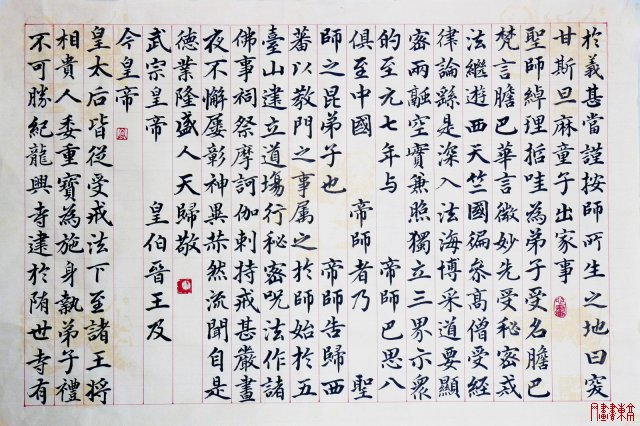 於義甚當謹按師所生之地曰突
甘斯旦麻童子出家事
聖師綽理哲哇為弟子受名膽巴
梵言膽巴華言微妙先受秘密戒
法繼遊西天竺國徧參高僧受經
律論繇是深入法海博采道要顯
密兩融空實兼照獨立三界示眾
的至元七年與 帝師巴思八
俱至中國 帝師者乃 聖
師之昆弟子也 帝師告歸西
蕃以教門之事属之於師始於五
臺山建立道場行秘密呪法作諸
佛事祠祭摩訶伽剌持戒甚嚴晝
夜不懈屢彰神異赫然流聞自是
德業隆盛人天歸敬
武宗皇帝 皇伯晉王及
今皇帝
皇太后皆從受戒法下至諸王將
相貴人委重寶為施身執弟子禮
不可勝紀龍興寺建於隋世寺有